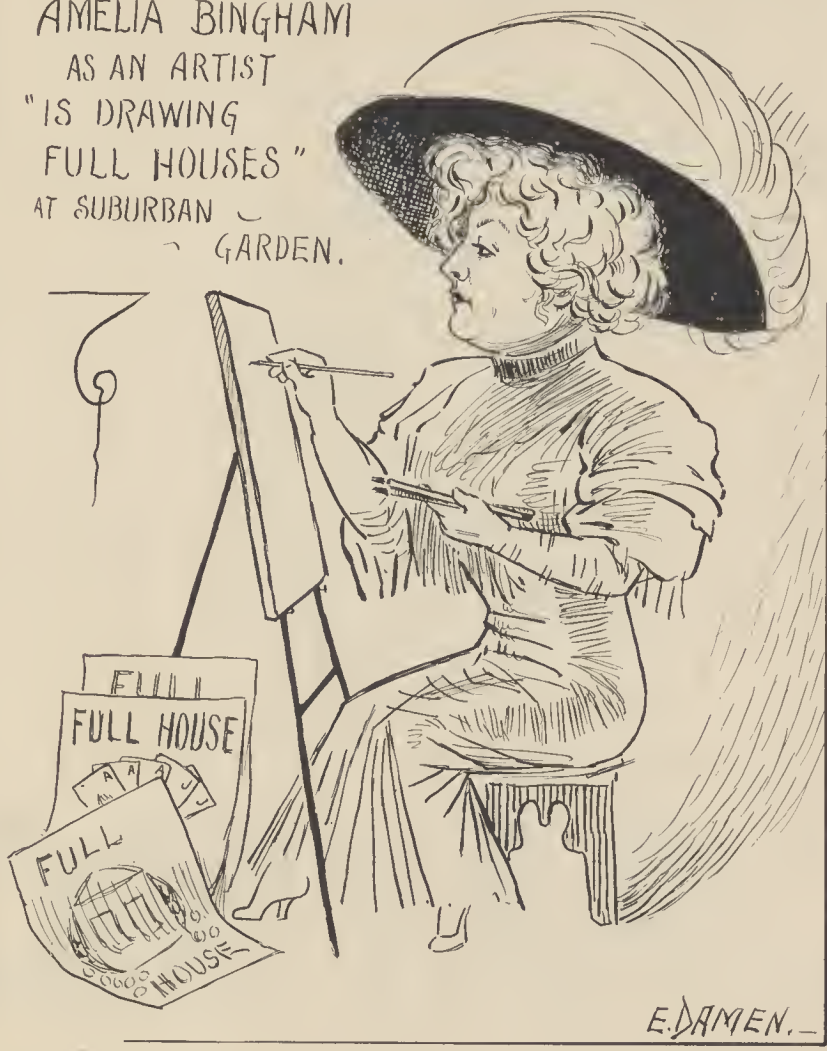 AMELIA BINGHAM
AS AN ARTIST
"IS DRAWING
FULL HOUSES"
AT SUBURBAN
GARDEN.
FULL
FULL HOUSE
A A A J J
FULL
HOUSE
E. DAMEN.